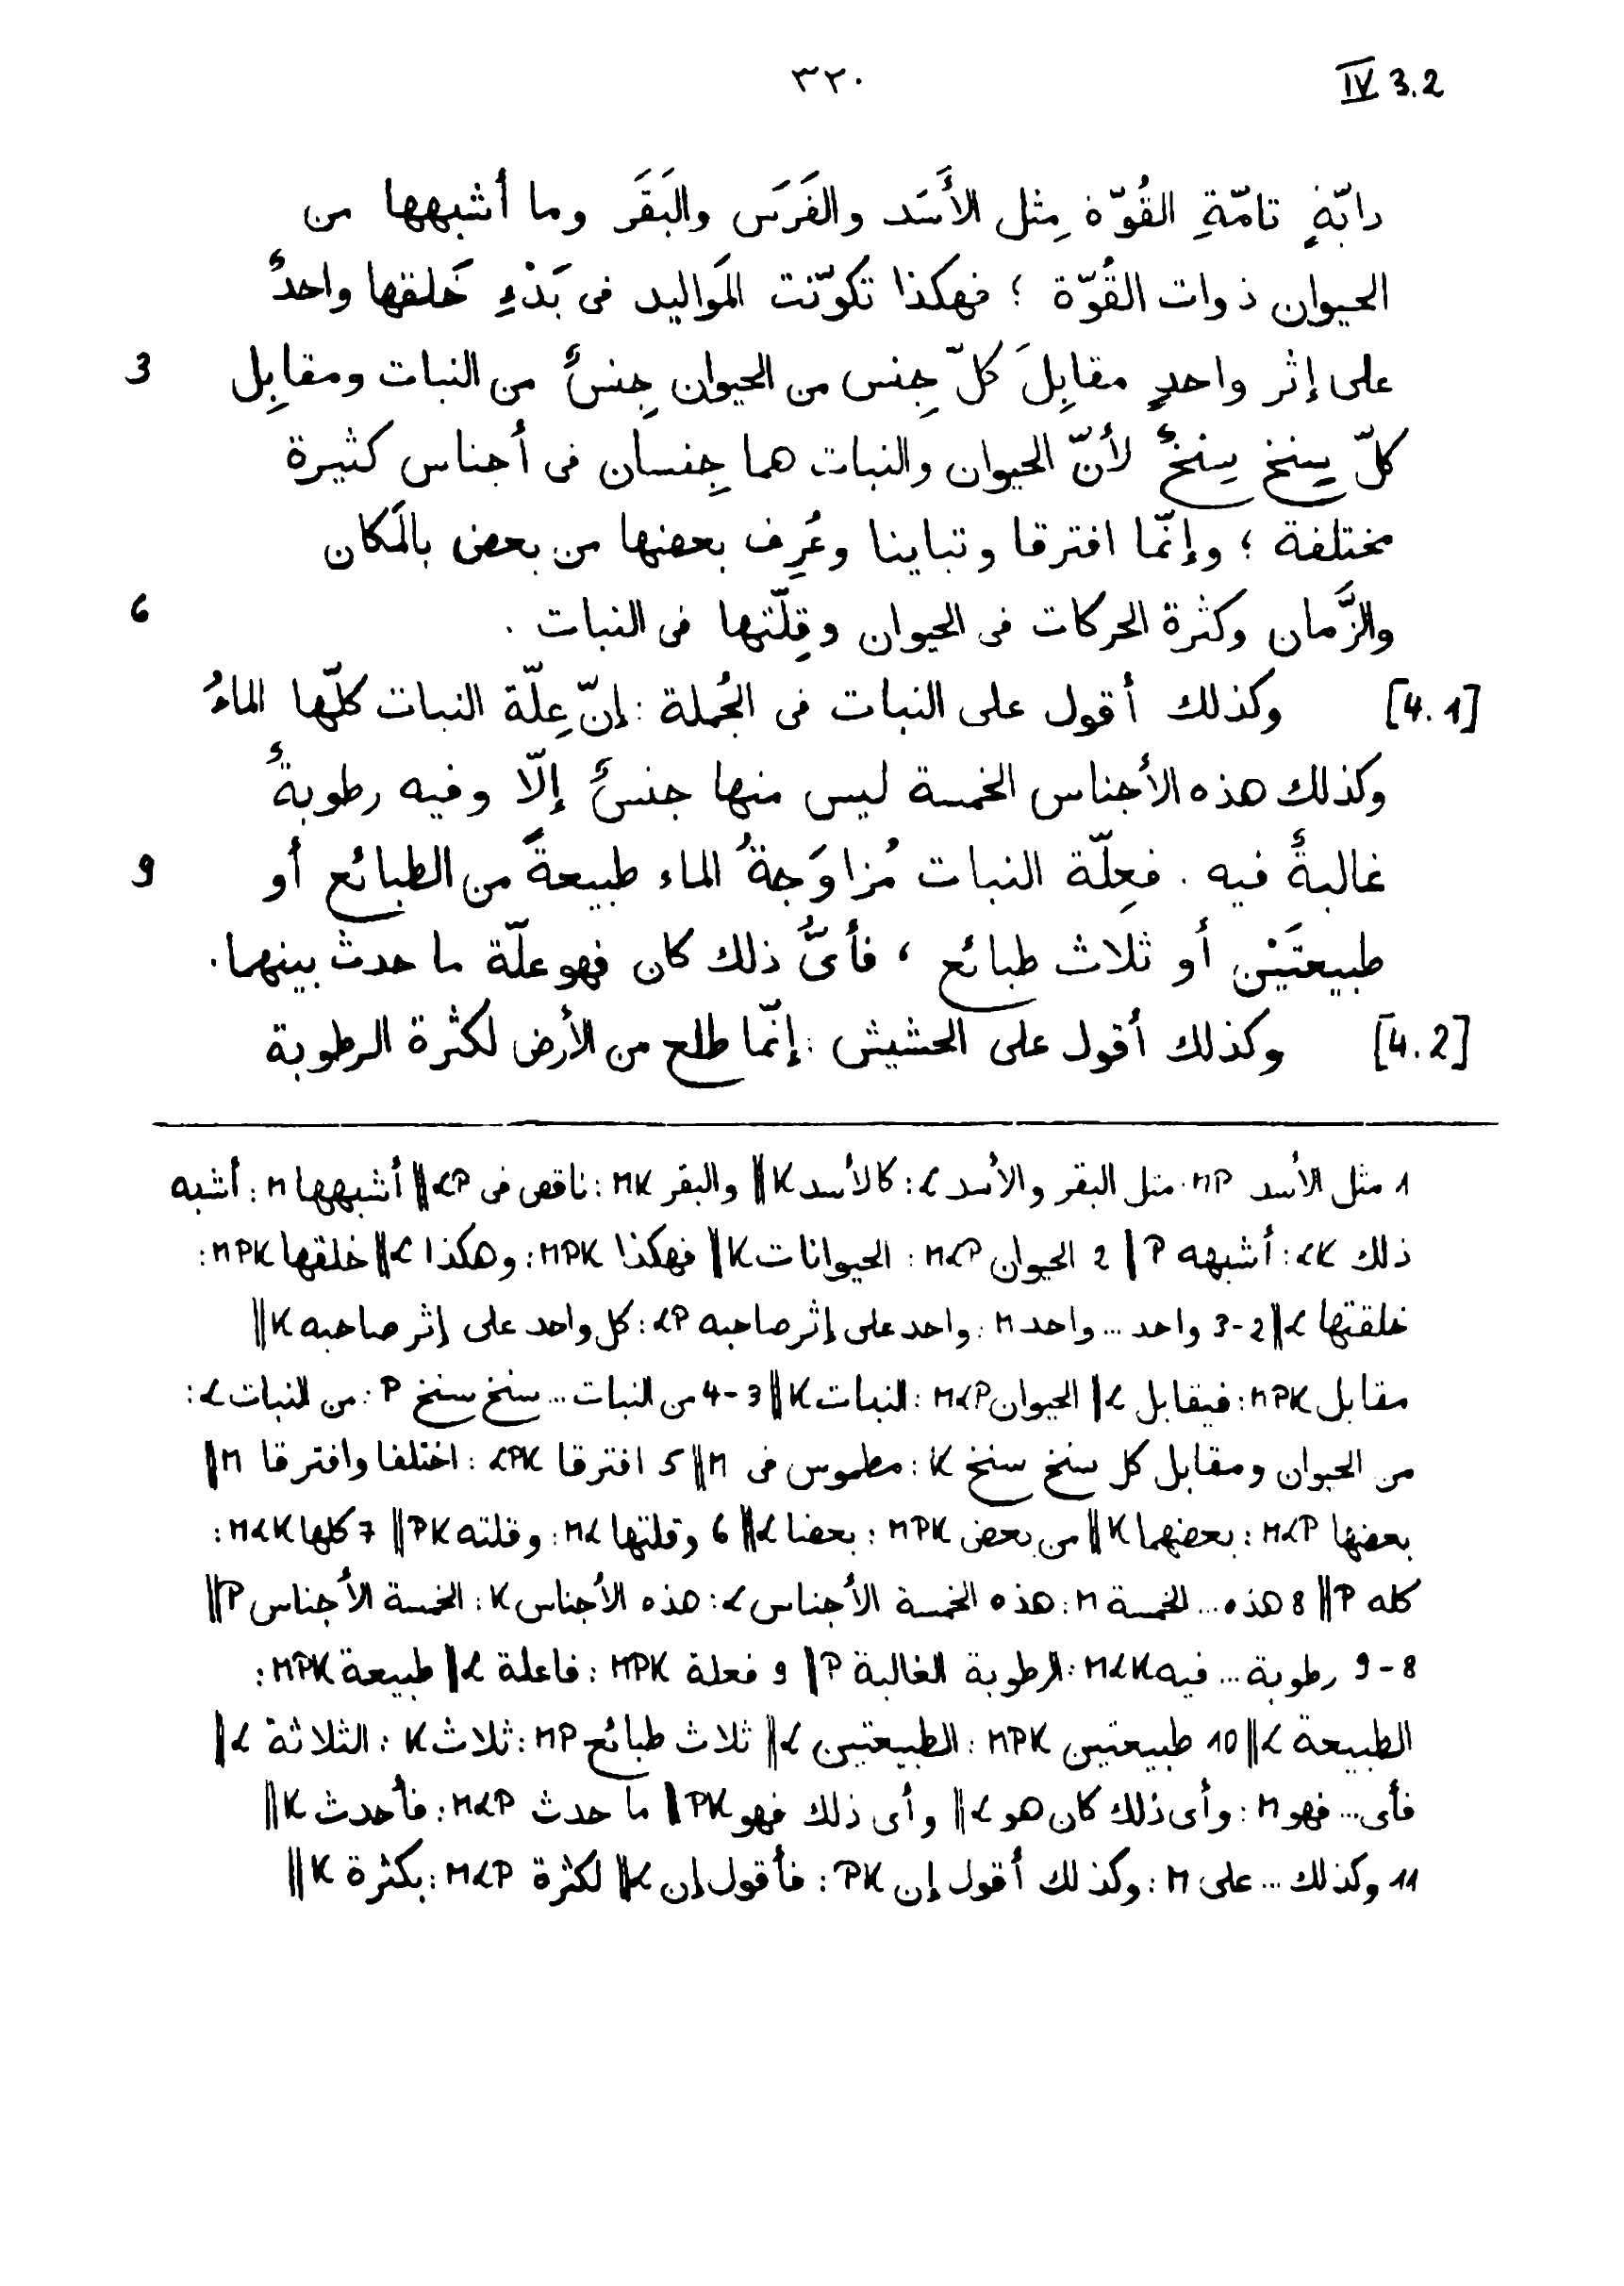 IV 3.2
٣٢٠
دابّةٍ تامّةِ القُوّة مِثل الأَسَد والفَرَس والبَقَر وما أشبهها من
الحيوان ذوات القُوّة ؛ فهكذا تكوّنت المَواليد فى بَدْءِ خَلقها واحدٌ
3 على إثر واحدٍ مقابِلَ كلّ جِنس من الحيوان جِنسٌ من النبات ومقابِل
كلّ سِنخ سِنخٌ لأنّ الحيوان والنبات هما جِنسان فى أجناس كثيرة
مختلفة ؛ وإنّما افترقا وتباينا وعُرِف بعضها من بعض بالمَكان
6 والزَّمان وكثرة الحركات فى الحيوان وقِلّتها فى النبات .
[4.1] وكذلك أقول على النبات فى الجُملة : إنّ عِلّة النبات كلّها الماءُ
وكذلك هذه الأجناس الخمسة ليس منها جنسٌ إلّا وفيه رطوبةٌ
9 غالبةٌ فيه . فعِلّة النبات مُزاوَجةُ الماء طبيعةً من الطبائع أو
طبيعتَيْن أو ثلاث طبائع ، فأىُّ ذلك كان فهو علّة ما حدث بينهما .
[4.2] وكذلك أقول على الحشيش : إنّما طلع من الأرض لكثرة الرطوبة
1 مثل الأسد MP : مثل البقر والأسد L : كالأسد K || والبقر MK : ناقص فى LP || أشبهها M : أشبه
ذلك LK : أشبهه P | 2 الحيوان MLP : الحيوانات K || فهكذا MPK : وهكذا L || خلقها MPK :
خلقتها L || 2-3 واحد ... واحد M : واحد على إثر صاحبه LP : كل واحد على إثر صاحبه K ||
مقابل MPK : فيقابل L || الحيوان MLP : النبات K || 3-4 من النبات ... سنخ سنخ P : من النبات L :
من الحيوان ومقابل كل سنخ سنخ K : مطموس فى M || 5 افترقا LPK : اختلفا وافترقا M ||
بعضها MLP : بعضهما K || من بعض MPK : بعضا L || 6 وقلتها ML : وقلته PK || 7 كلها MLK :
كله P || 8 هذه ... الخمسة M : هذه الخمسة الأجناس L : هذه الأجناس K : الخمسة الأجناس P ||
8-9 رطوبة ... فيه MLK : الرطوبة الغالبة P || 9 فعلة MPK : فاعلة L || طبيعة MPK :
الطبيعة L || 10 طبيعتين MPK : الطبيعتين L || ثلاث طبائع MP : ثلاث K : الثلاثة L ||
فأى ... فهو M : وأى ذلك كان هو L || وأى ذلك فهو PK || ما حدث MLP : فأحدث K ||
11 وكذلك ... على M : وكذلك أقول إن PK : فأقول إن L || لكثرة MLP : بكثرة K ||